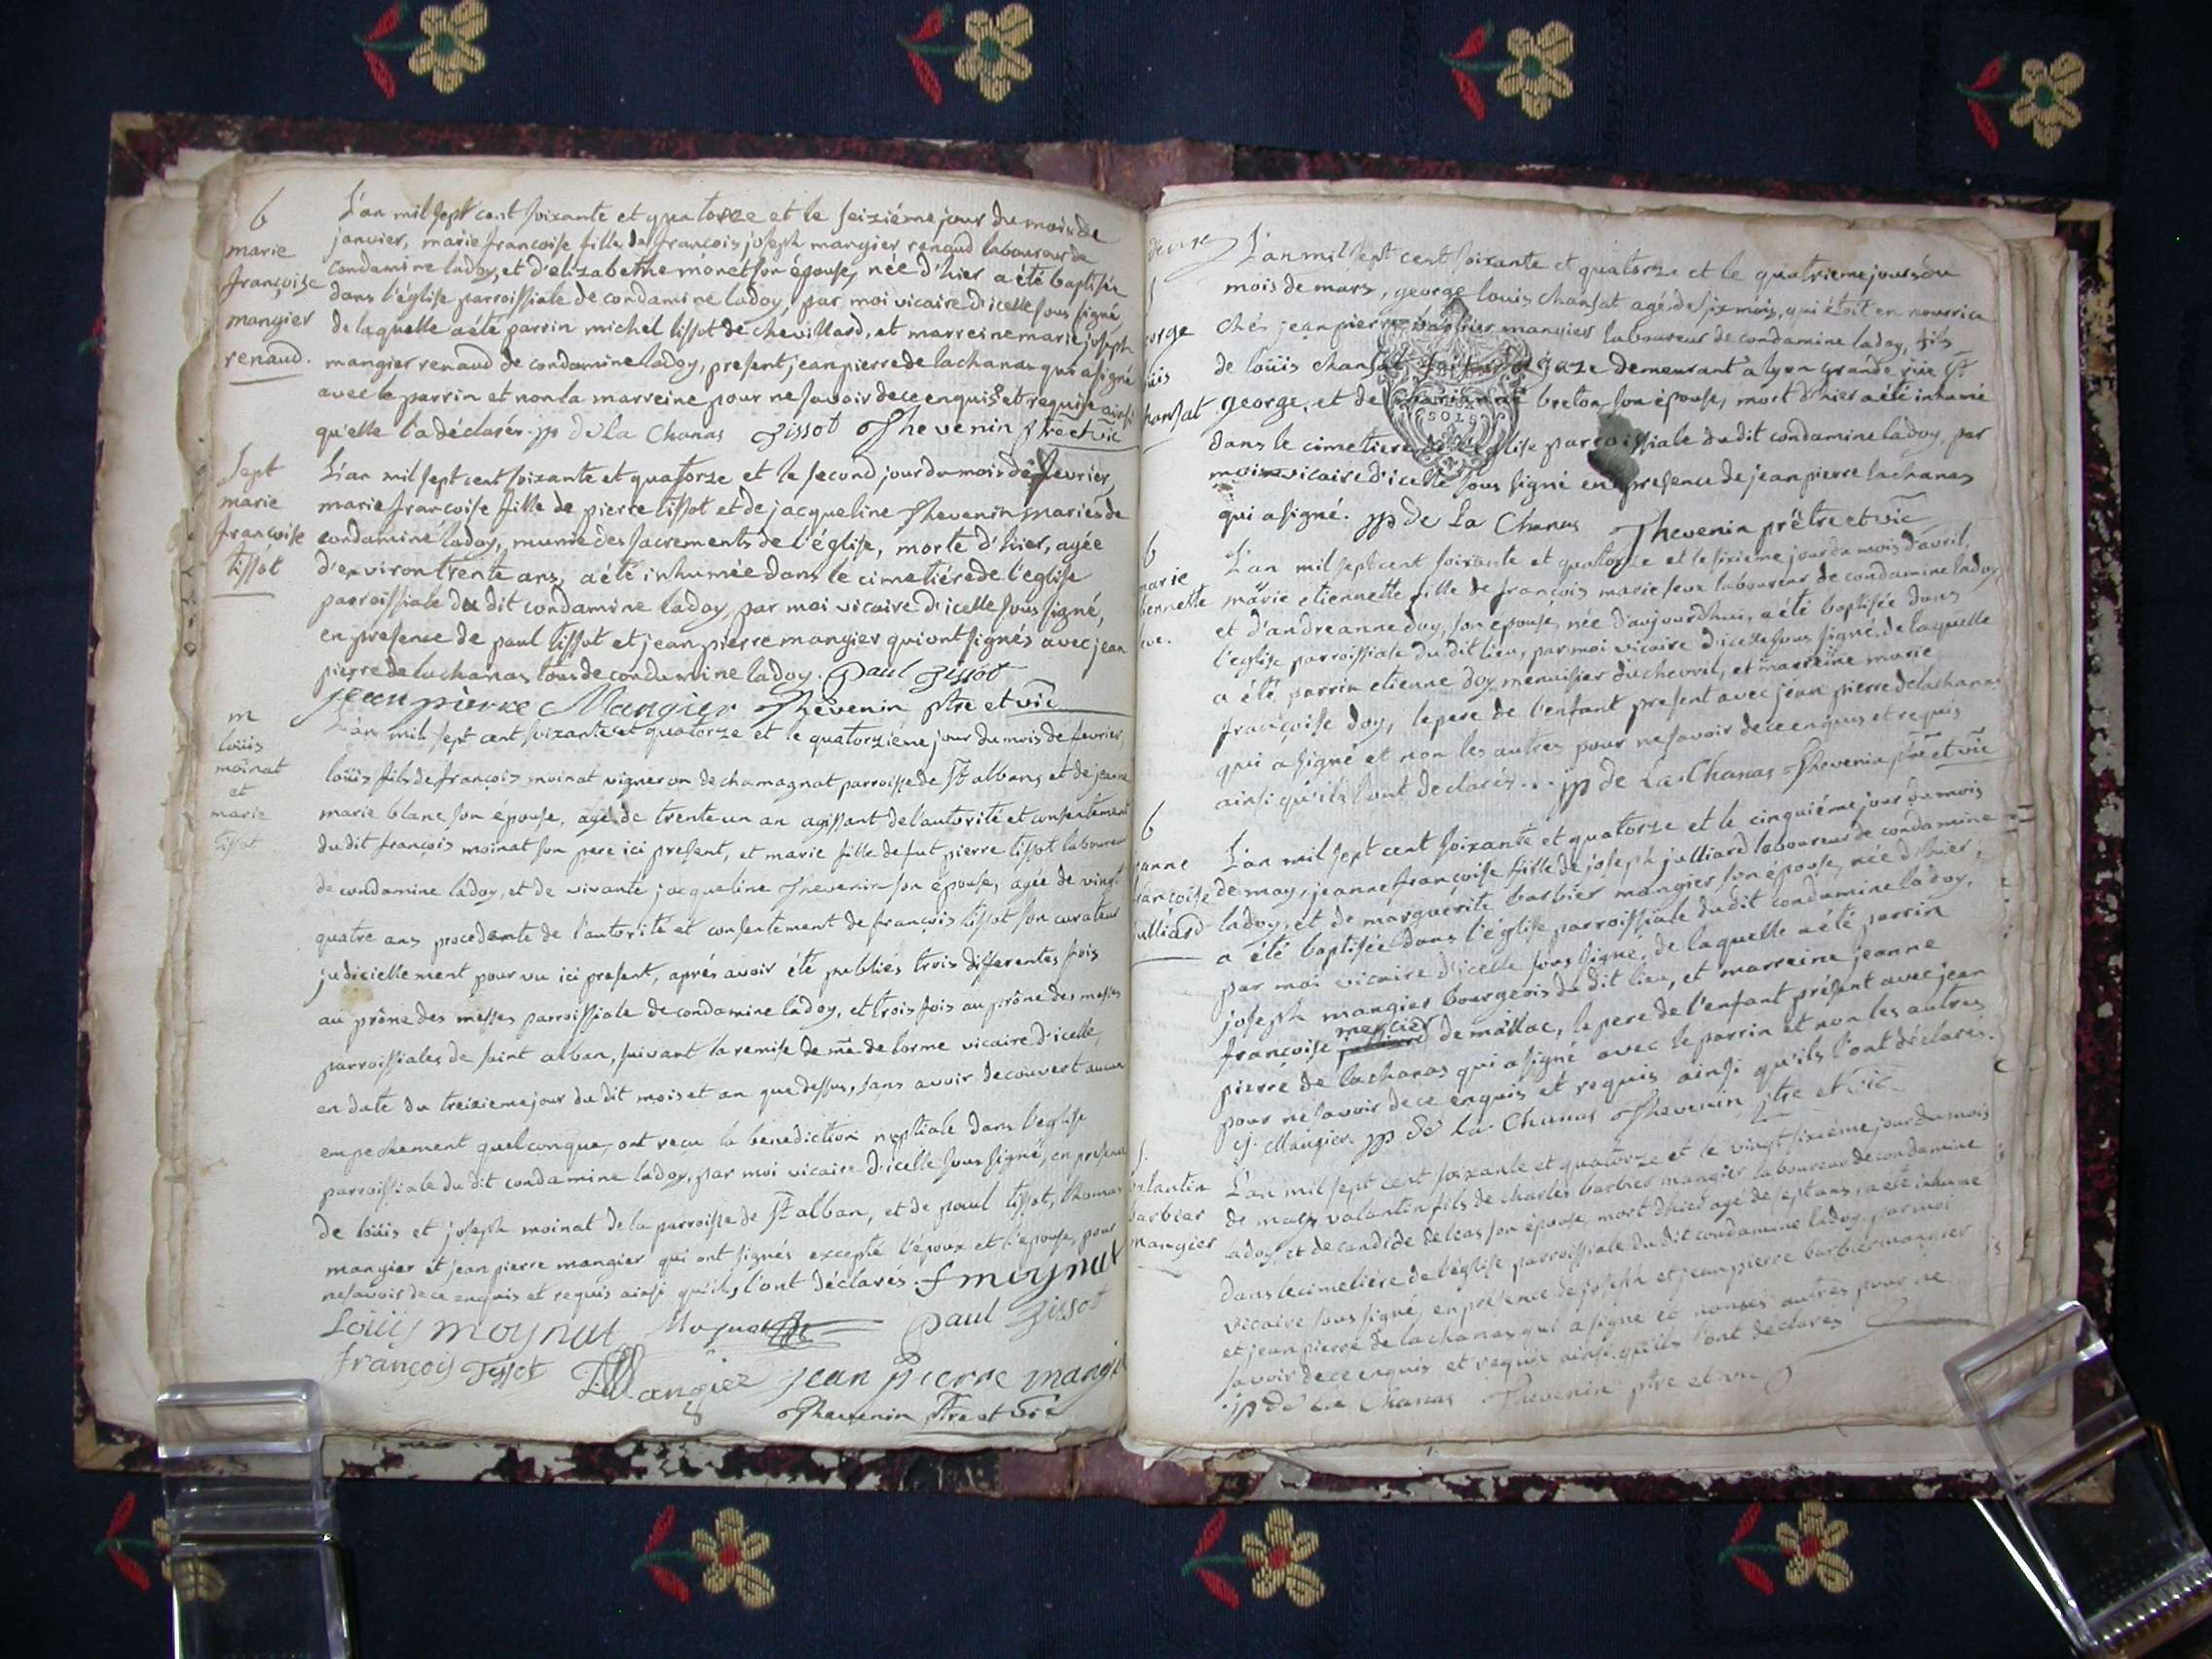 b
marie
françoise
mangier
renaud.
L'an mil sept cent soixante et quatorze et le seizième jour du mois de
janvier, marie françoise fille de françois joseph mangier renaud laboureur de
condamine ladoy, et d'elizabethe monet son épouse, née d'hier a été baptisée
dans l'église parroissiale de condamine ladoy, par moi vicaire d'icelle sous signé
de laquelle a été parrin michel tissot de chevillard, et marreine marie joseph
mangier renaud de condamine ladoy, present jean pierre de lachanas qui a signé
avec le parrin et non la marreine pour ne savoir de ce enquise et requise ainsi
qu'elle l'a déclarés. jp de la Chanas Tissot Thevenin ptre et vic
sept
marie
francoise
tissot
L'an mil sept cent soixante et quatorze et le second jour du mois de fevrier,
marie françoise fille de pierre tissot et de jacqueline Thevenin mariés de
condamine ladoy, munie des sacrements de l'église, morte d'hier, agée
d'environ trente ans, a été inhumée dans le cimetiére de l'eglise
parroissiale du dit condamine ladoy, par moi vicaire d'icelle sous signé,
en presence de paul tissot et jean pierre mangier qui ont signés avec jean
pierre de lachanas tous de condamine ladoy. Paul Tissot
jean pierre Mangier Thevenin ptre et vic
m
loüis
moinat
et
marie
tissot
L'an mil sept cent soixante et quatorze et le quatorzième jour du mois de fevrier,
loüis fils de françois moinat vigneron de chamagnat parroisse de St albans et de jeanne
marie blanc son épouse, agé de trente un an agissant de l'autorité et consentement
du dit françois moinat son pere ici present, et marie fille de fut pierre tissot laboureur
de condamine ladoy, et de vivante jacqueline Thevenin son épouse, agée de vingt
quatre ans procedante de l'autorité et consentement de françois tissot son curateur
judiciellement pour vu ici present, aprés avoir été publiés trois differentes fois
au prône des messes parroissiale de condamine ladoy, et trois fois au prône des messes
parroissiales de saint alban, suivant la remise de mre de lorme vicaire d'icelle,
en date du treizieme jour du dit mois et an que dessus, sans avoir decouvert aucun
empechement quelconque, ont reçu la benediction nuptiale dans l'eglise
parroissiale du dit condamine ladoy, par moi vicaire d'icelle sous signé, en presence
de loüis et joseph moinat de la parroisse de St alban, et de paul tissot, thomas
mangier et jean pierre mangier qui ont signés excepté l'époux et l'epouse, pour
ne savoir de ce enquis et requis ainsi qu'ils l'ont déclarés. f moynat
Loüis moynat Moynat Paul Tissot
françois Tissot Mangier jean pierre mangie
Thevenin ptre et vic
orge
oüis
hansat
L'an mil sept cent soixante et quatorze et le quatrieme jours du
mois de mars, george louis chansat agé de six mois, qui étoit en nourrice
chés jean pierre barbier mangier laboureur de condamine ladoy, fils
de loüis chansat de gaze demeurant à lyon grande rüe St
george, et de breton son épouse, mort d'hier a été inhumé
dans le cimetiere de l'église parroissiale du dit condamine ladoy, par
moi vicaire d'icelle sous signé en presence de jean pierre lachanas
qui a signé. jp de La Chanas Thevenin prêtre et vic
SOLS
b
marie
tiennette
L'an mil sept cent soixante et quatorze et le sixieme jour du mois d'avril,
marie etiennette fille de françois marie seve laboureur de condamine ladoy,
et d'andreanne doy, son épouse, née d'aujourdhui, a été baptisée dans
l'eglise parroissiale du dit lieu, par moi vicaire d'icelle sous signé, de laquelle
a été parrin etienne doy menuisier du chevril, et marreine marie
françoise doy, le pere de l'enfant present avec jean pierre de lachanas
qui a signé et non les autres pour ne savoir de ce enquis et requis
ainsi qu'ils l'ont declarés... jp de La Chanas Thevenin ptre et vic
b
anne
rançoise
ulliard
L'an mil sept cent soixante et quatorze et le cinquiéme jour du mois
de may, jeanne françoise fille de joseph julliard laboureur de condamine
ladoy, et de marguerite barbier mangier son épouse, née d'hier,
a été baptisée dans l'église parroissiale du dit condamine ladoy,
par moi vicaire d'icelle sous signé, de laquelle a été parrin
joseph mangier bourgeois du dit lieu, et marreine jeanne
françoise mercier de maillac, le pere de l'enfant présent avec jean
pierre de lachanas qui a signé avec le parrin et non les autres
pour ne savoir de ce enquis et requis ainsi qu'ils l'ont déclarés.
Mangier jp de la Chanas Thevenin ptre et vic
s.
alantin
barbier
mangier
L'an mil sept cent soixante et quatorze et le vingt sixième jour du mois
de may, valantin fils de charles barbier mangier laboureur de condamine
ladoy, et de candide deleas son épouse, mort d'hier agé de sept ans, a été inhumé
dans le cimetiére de l'église parroissiale du dit condamine ladoy, par moi
vicaire sous signé, en presence de joseph et jean pierre barbier mangier
et jean pierre de lachanas qui a signé et non les autres pour ne
savoir de ce enquis et requis ainsi qu'ils l'ont declarés
jp de la Chanas Thevenin ptre et vic